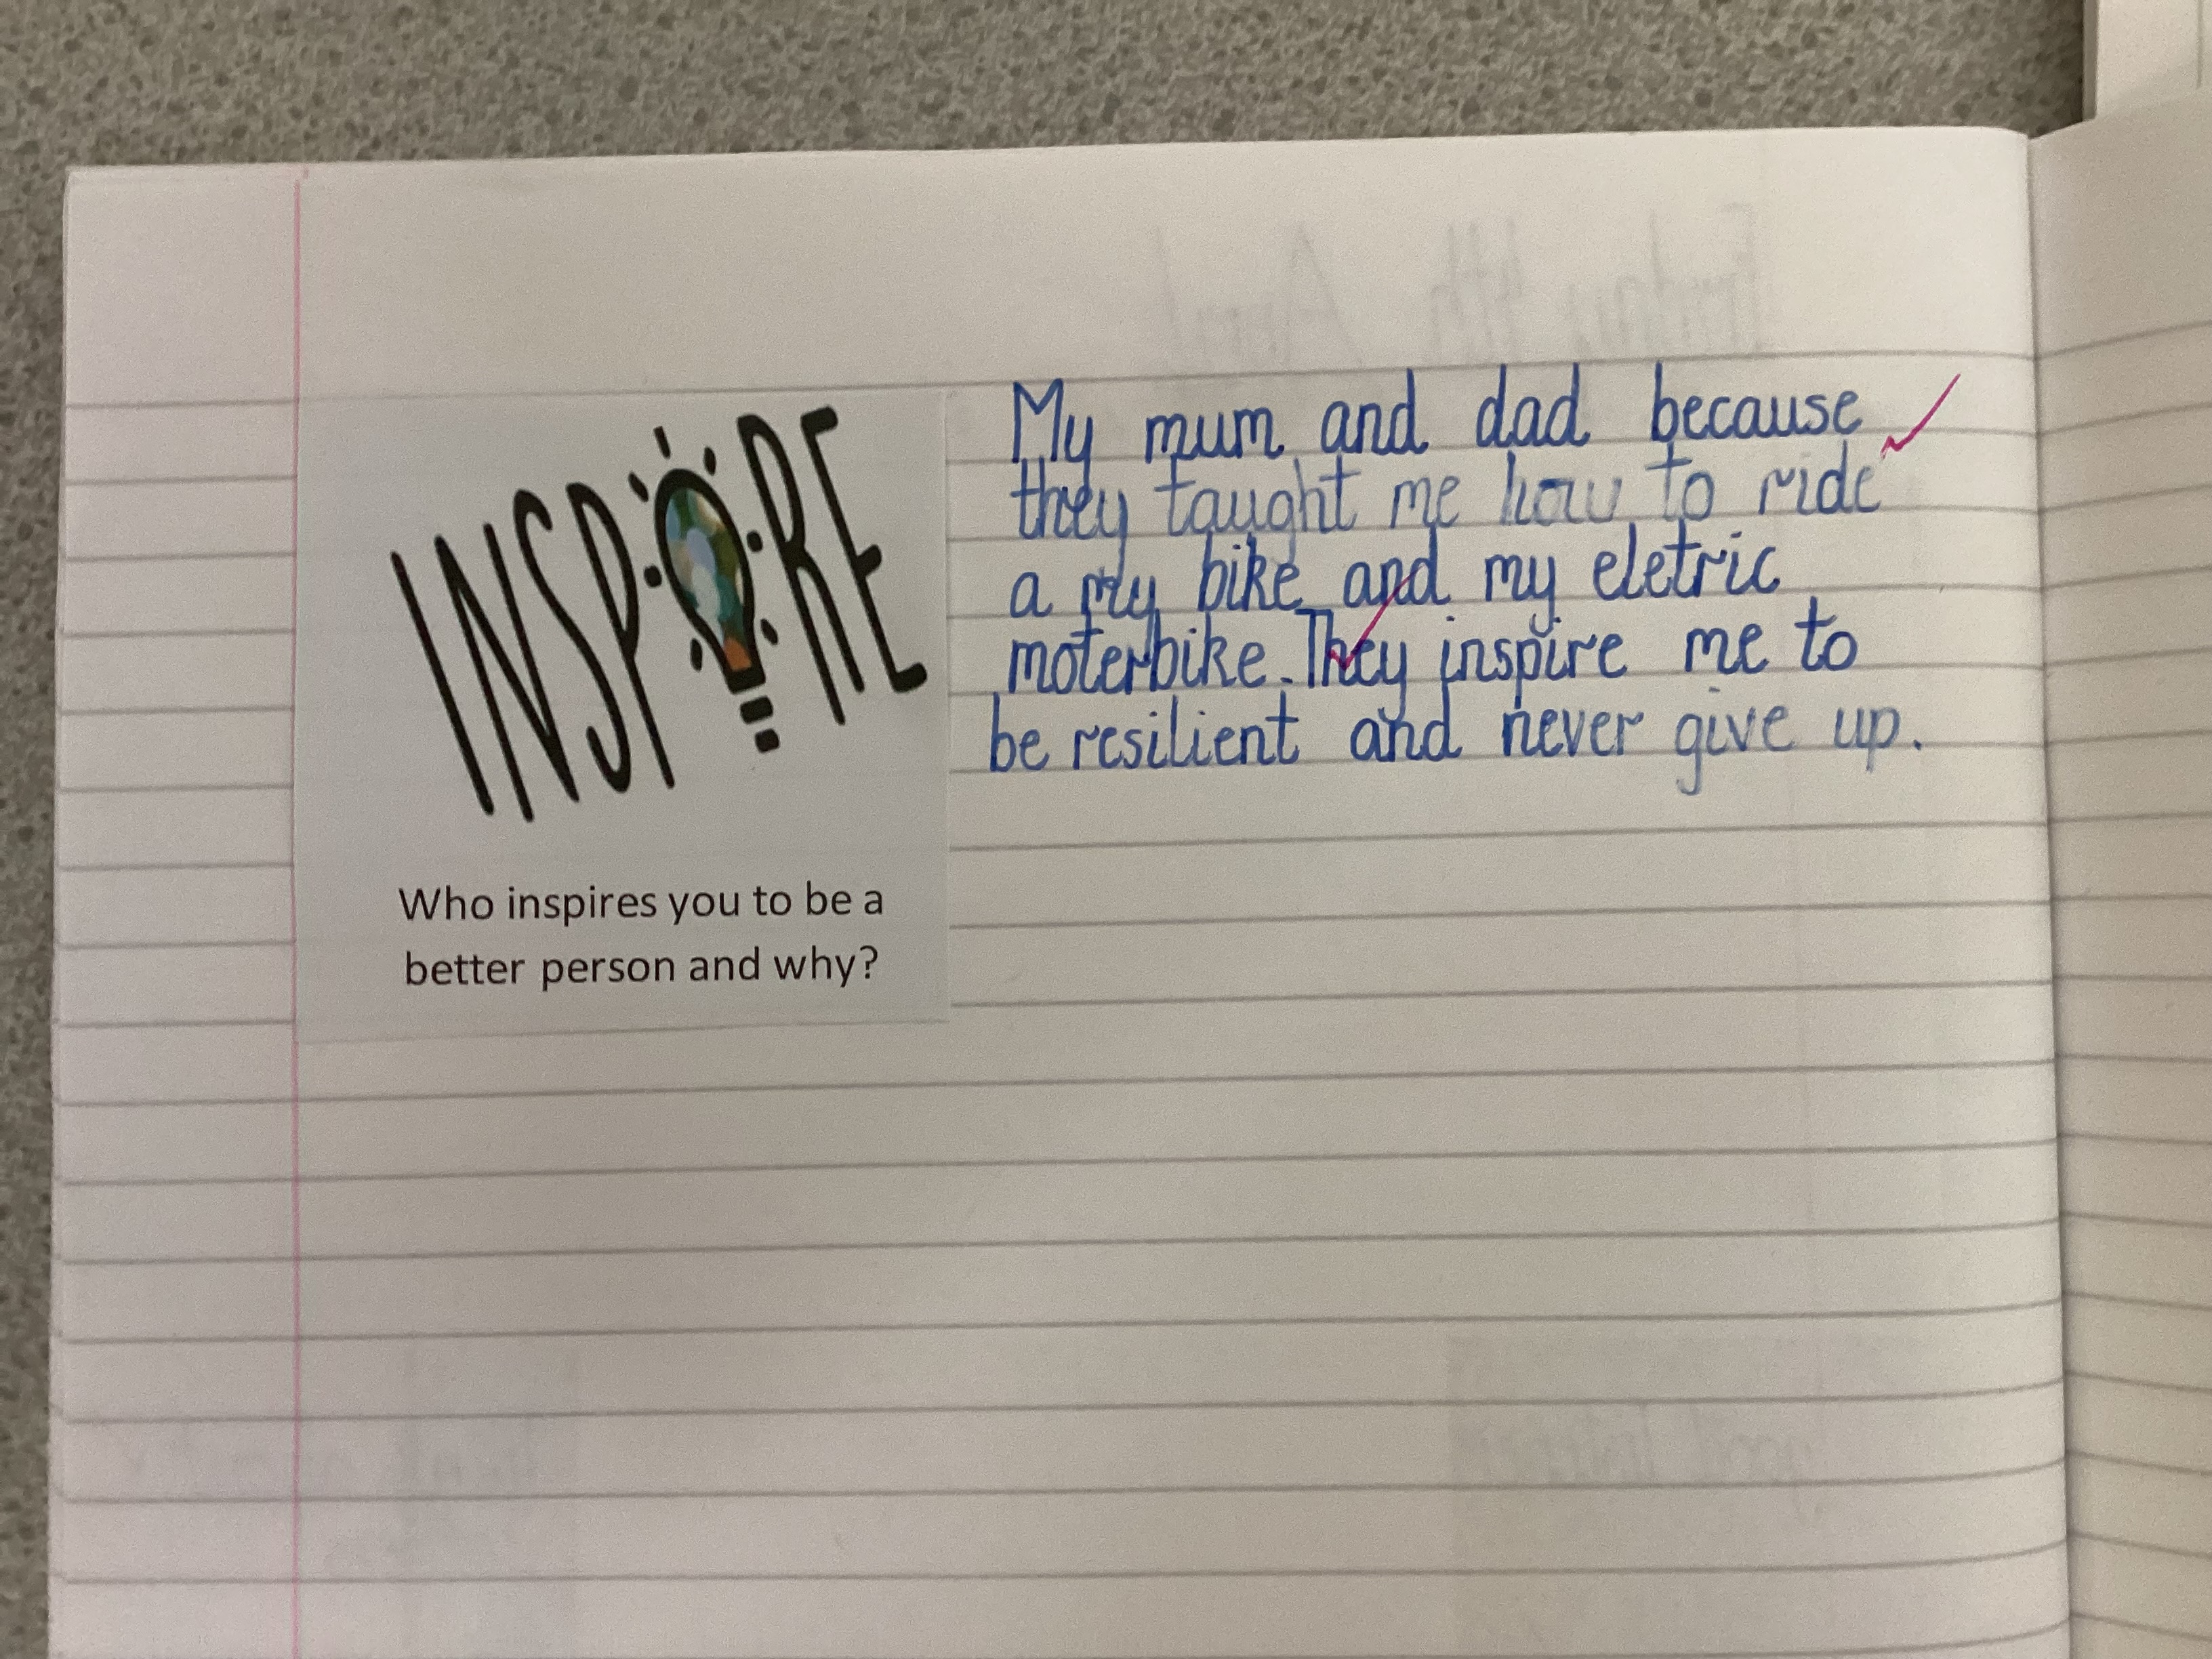 INSPIRE
Who inspires you to be a
better person and why?
My mum and dad because
they taught me how to ride
a my bike and my eletric
moterbike. They inspire me to
be resilient and never give up.